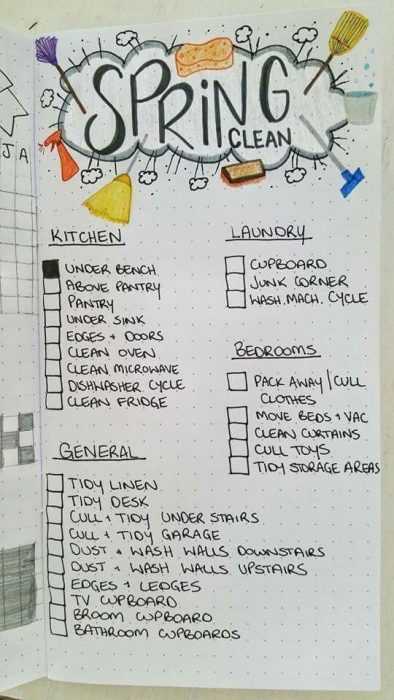 J A
SPRING
CLEAN
KITCHEN
UNDER BENCH
ABOVE PANTRY
PANTRY
UNDER SINK
EDGES + DOORS
CLEAN OVEN
CLEAN MICROWAVE
DISHWASHER CYCLE
CLEAN FRIDGE
LAUNDRY
CUPBOARD
JUNK CORNER
WASH.MACH. CYCLE
BEDROOMS
PACK AWAY/CULL
CLOTHES
MOVE BEDS + VAC
CLEAN CURTAINS
CULL TOYS
TIDY STORAGE AREAS
GENERAL
TIDY LINEN
TIDY DESK
CULL + TIDY UNDER STAIRS
CULL + TIDY GARAGE
DUST + WASH WALLS DOWNSTAIRS
DUST + WASH WALLS UPSTAIRS
EDGES + LEDGES
TV CUPBOARD
BROOM CUPBOARD
BATHROOM CUPBOARDS